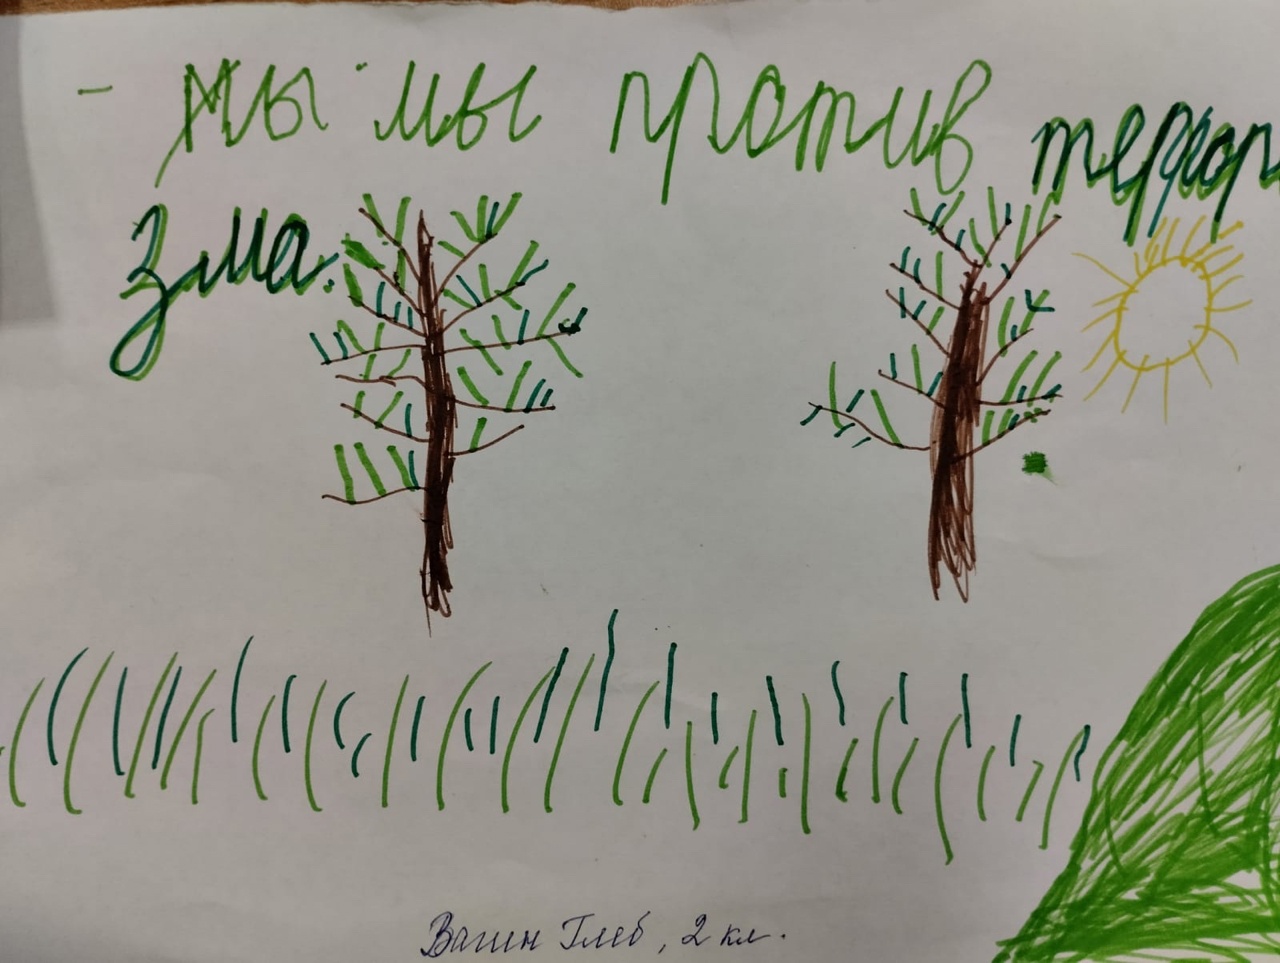 - мы мы против террор
зма.
Вагин Глеб, 2 кл.